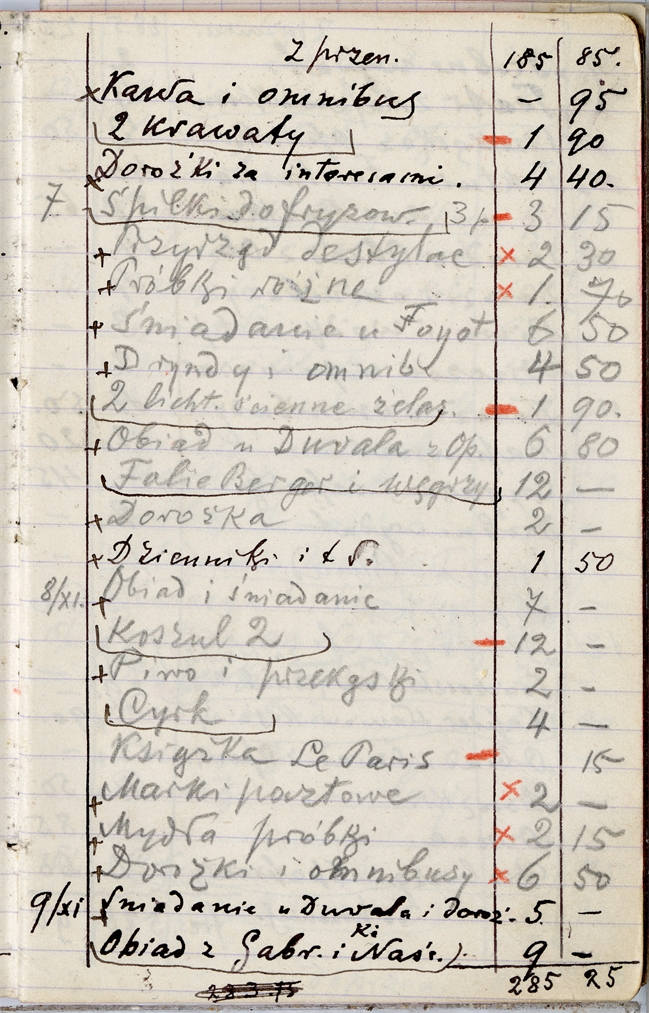 z przen. 185 85.
× Kawa i omnibus - 95
2 krawaty - 1 90
× Dorożki za interesami. 4 40.
7 Szpilki do fryzow. 3 p - 3 15
+ Przyrząd destylac × 2 30
+ Próbki różne × 1. 70
+ Śniadanie u Foyot 6 50
+ Dryndy i omnib. 4 50
2 licht. ścienne żelaz. - 1 90.
+ Obiad u Duvala z Op. 6 80
Folie Berger i węgrzy 12 —
+ Dorożka 2 -
× Dzienniki i t d. 1 50
8/XI. + Obiad i śniadanie 7 -
Koszul 2 - 12 -
+ Piwo i przekąski 2 -
Cyrk 4 —
Książka Le Paris - 15
+ Marki pocztowe × 2 —
+ Mydła próbki × 2 15
+ Dorożki i omnibusy × 6 50
9/XI + Śniadanie u Duvala i doroż. 5. —
ki
Obiad z Gabr. i Naśc.) 9 -
283 75 285 25